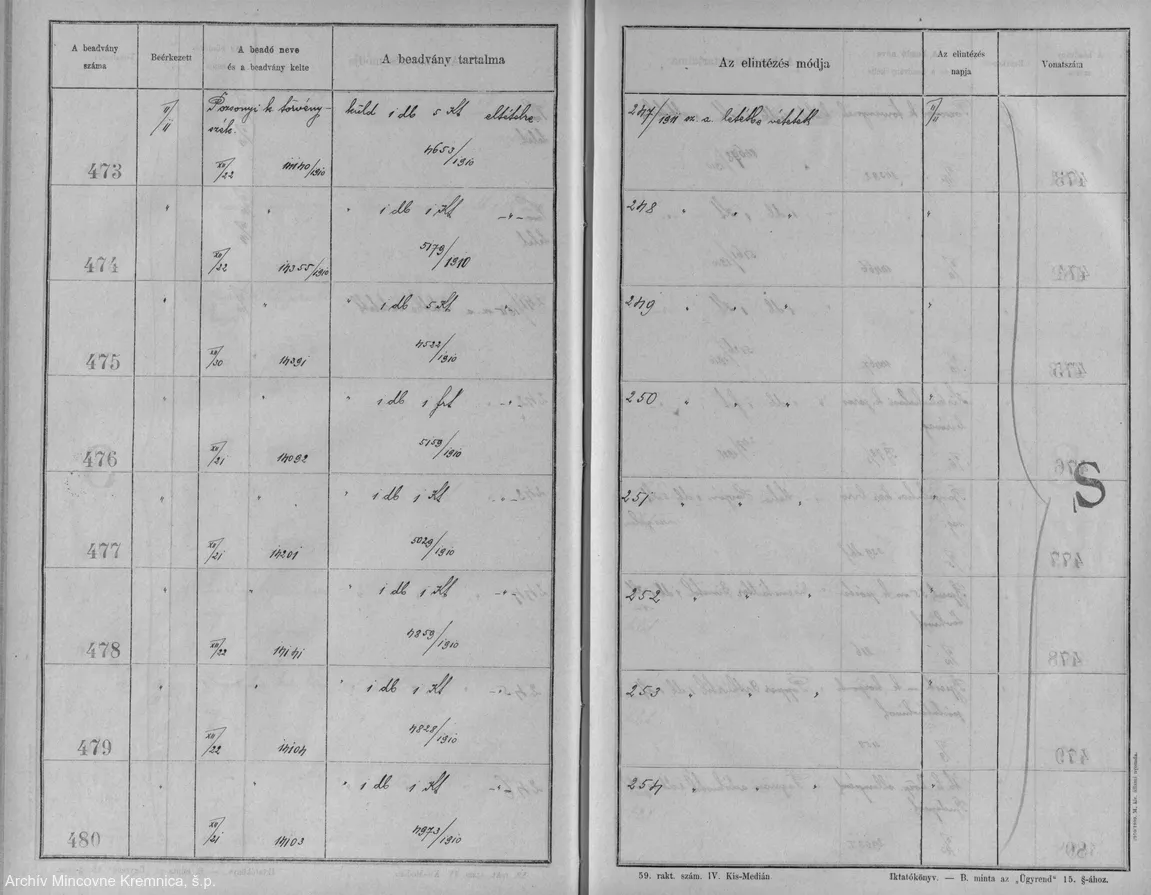 A beadvány
száma
Beérkezett
A beadó neve
és a beadvány kelte
A beadvány tartalma
II/11
Pozsonyi k. törvény-
szék
küld 1 db 5 Kt
473
XII/22 14140/1910
4653/1910
" " " 1 db 1 Kt -"-
474
XII/22 14355/1910
5179/1910
" " " 1 db 5 Kt "
475
XII/30 14391
4522/1910
" " " 1 db 1 frt -"-
476
XII/21 14092
5159/1910
" " " 1 db 1 Kt "
477
XII/21 14201
5029/1910
" " " 1 db 1 Kt -"-
478
XII/22 14141
4859/1910
" " " 1 db 1 Kt -"-
479
XII/22 14104
4828/1910
" " " 1 db 1 Kt -"-
480
XII/21 14103
4973/1910
Az elintézés módja
Az elintézés
napja
Vonatszám
247/1911 sz. a. letétbe vétetett
II/11
248 " " " "
249 " " " "
250 " " " "
251 " " " "
S
252 " " " "
253 " " " "
254 " " " "
59. rakt. szám. IV. Kis-Medián
Iktatókönyv. — B. minta az „Ügyrend" 15. §-ához.
Archív Mincovne Kremnica, š.p.